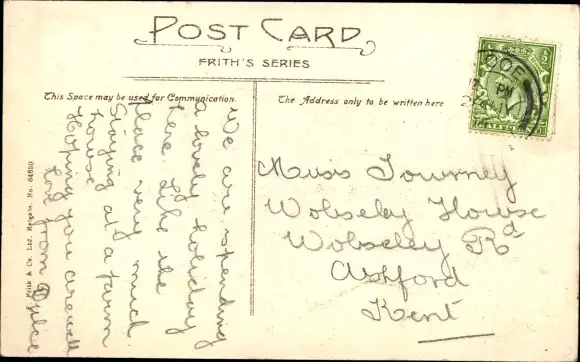 POST CARD
FRITH'S SERIES
This Space may be used for Communication.
The Address only to be written here
We are spending
a lovely holiday
here. Like the
place very much.
Staying at a farm
house
Hoping you are well
Love from
F. Frith & Co. Ltd. Reigate. No. 64650
Miss Tourney
Wolseley House
Wolseley Rd
Ashford
Kent
PM